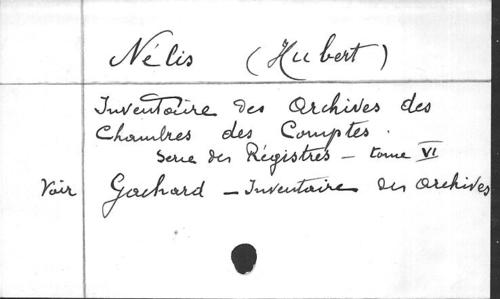 Nélis (Hubert)
Inventaire des Archives des
Chambres des Comptes.
Serie des Régistres – tome VI
Voir Gachard – Inventaire des Archives